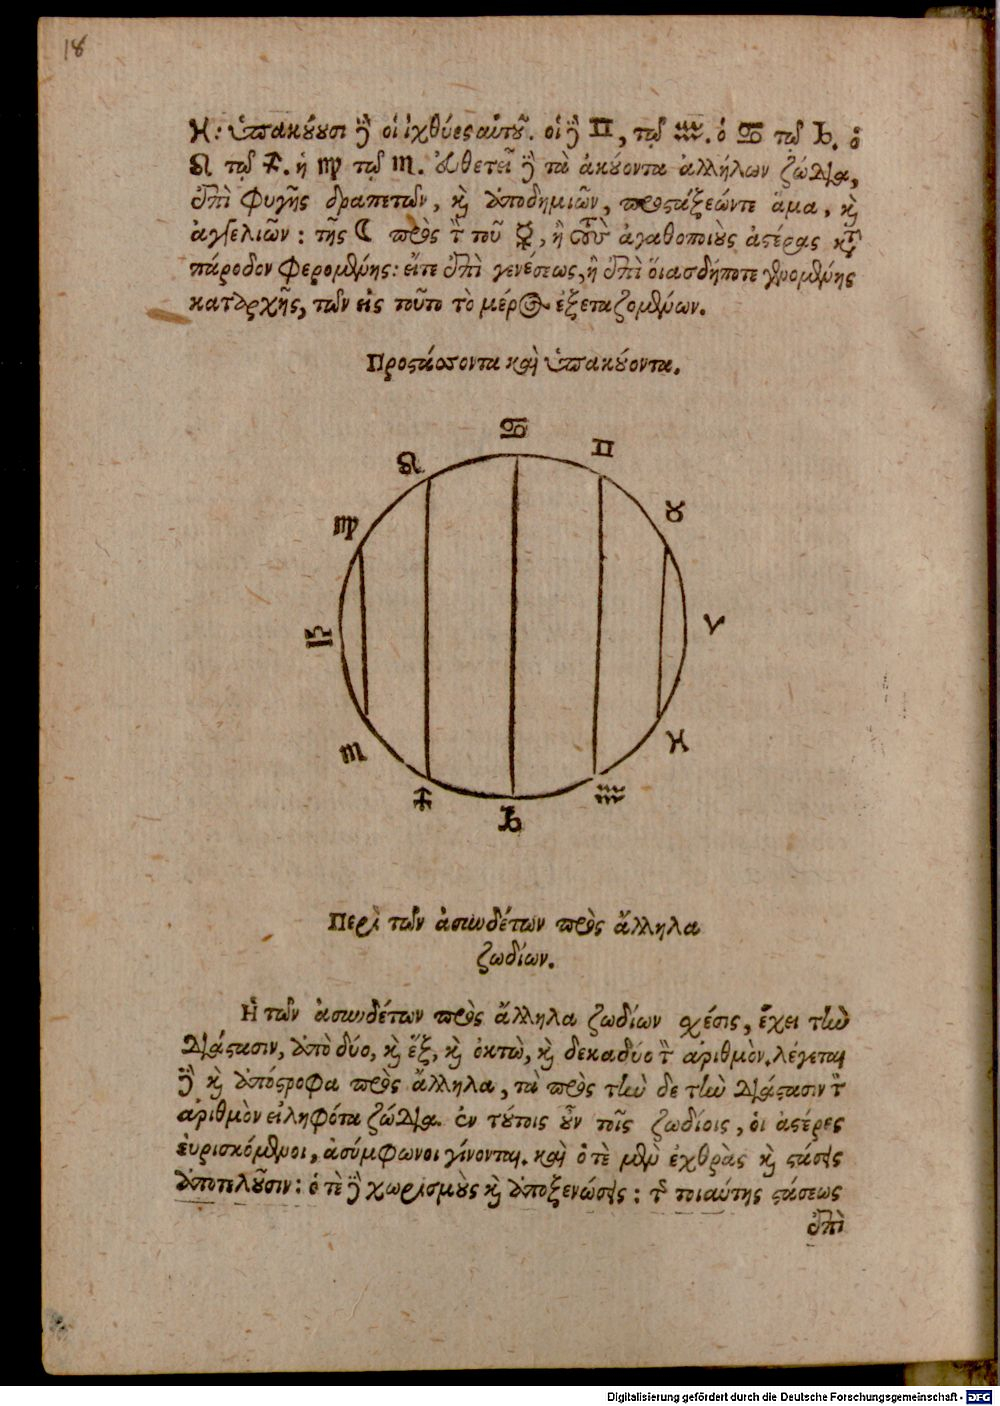 18
♓: ὑπακούουσι δὲ οἱ ἰχθύες αὐτοῦ. οἱ δὲ ♊, τῷ ♒. ὁ ♋ τῷ ♑. ὁ
♌ τῷ ♐. ἡ ♍ τῷ ♏. εὐθετεῖ δὲ τὰ ἀκούοντα ἀλλήλων ζώδια,
ἐπὶ φυγῆς δραπετῶν, καὶ ἀποδημιῶν, ἅμα, καὶ
ἀγγελιῶν: τῆς ☾ πρὸς τὸν τοῦ ☿, ἢ τοὺς ἀγαθοποιοὺς ἀστέρας κατὰ
πάροδον φερομένης: εἴτε ἐπὶ γενέσεως, ἢ ἐπὶ οἵας δήποτε γενομένης
καταρχῆς, τῶν εἰς τοῦτο τὸ μέρος ἐξεταζομένων.
Προστάσσοντα καὶ ὑπακούοντα.
♋
♌ ♊
♍ ♉
♎ ♈
♏ ♓
♐ ♒
♑
Περὶ τῶν ἀσυνδέτων πρὸς ἄλληλα
ζωδίων.
Ἡ τῶν ἀσυνδέτων πρὸς ἄλληλα ζωδίων σχέσις, ἔχει τὴν
διάστασιν, ἀπὸ δύο, καὶ ἓξ, καὶ ὀκτὼ, καὶ δεκαδύο τὸν ἀριθμὸν. λέγεται
δὲ καὶ ἀπόστροφα πρὸς ἄλληλα, τὰ πρὸς τὴν δε τὴν διάστασιν τὸν
ἀριθμὸν εἰληφότα ζώδια. ἐν τούτοις οὖν τοῖς ζωδίοις, οἱ ἀστέρες
εὑρισκόμενοι, ἀσύμφωνοι γίνονται. καὶ ὁτὲ μὲν ἐχθρὰς καὶ στάσεις
ἀποτελοῦσιν: ὁτὲ δὲ χωρισμοὺς καὶ ἀποξενώσεις: τῆς τοιαύτης στάσεως
ἐπὶ
Digitalisierung gefördert durch die Deutsche Forschungsgemeinschaft - DFG